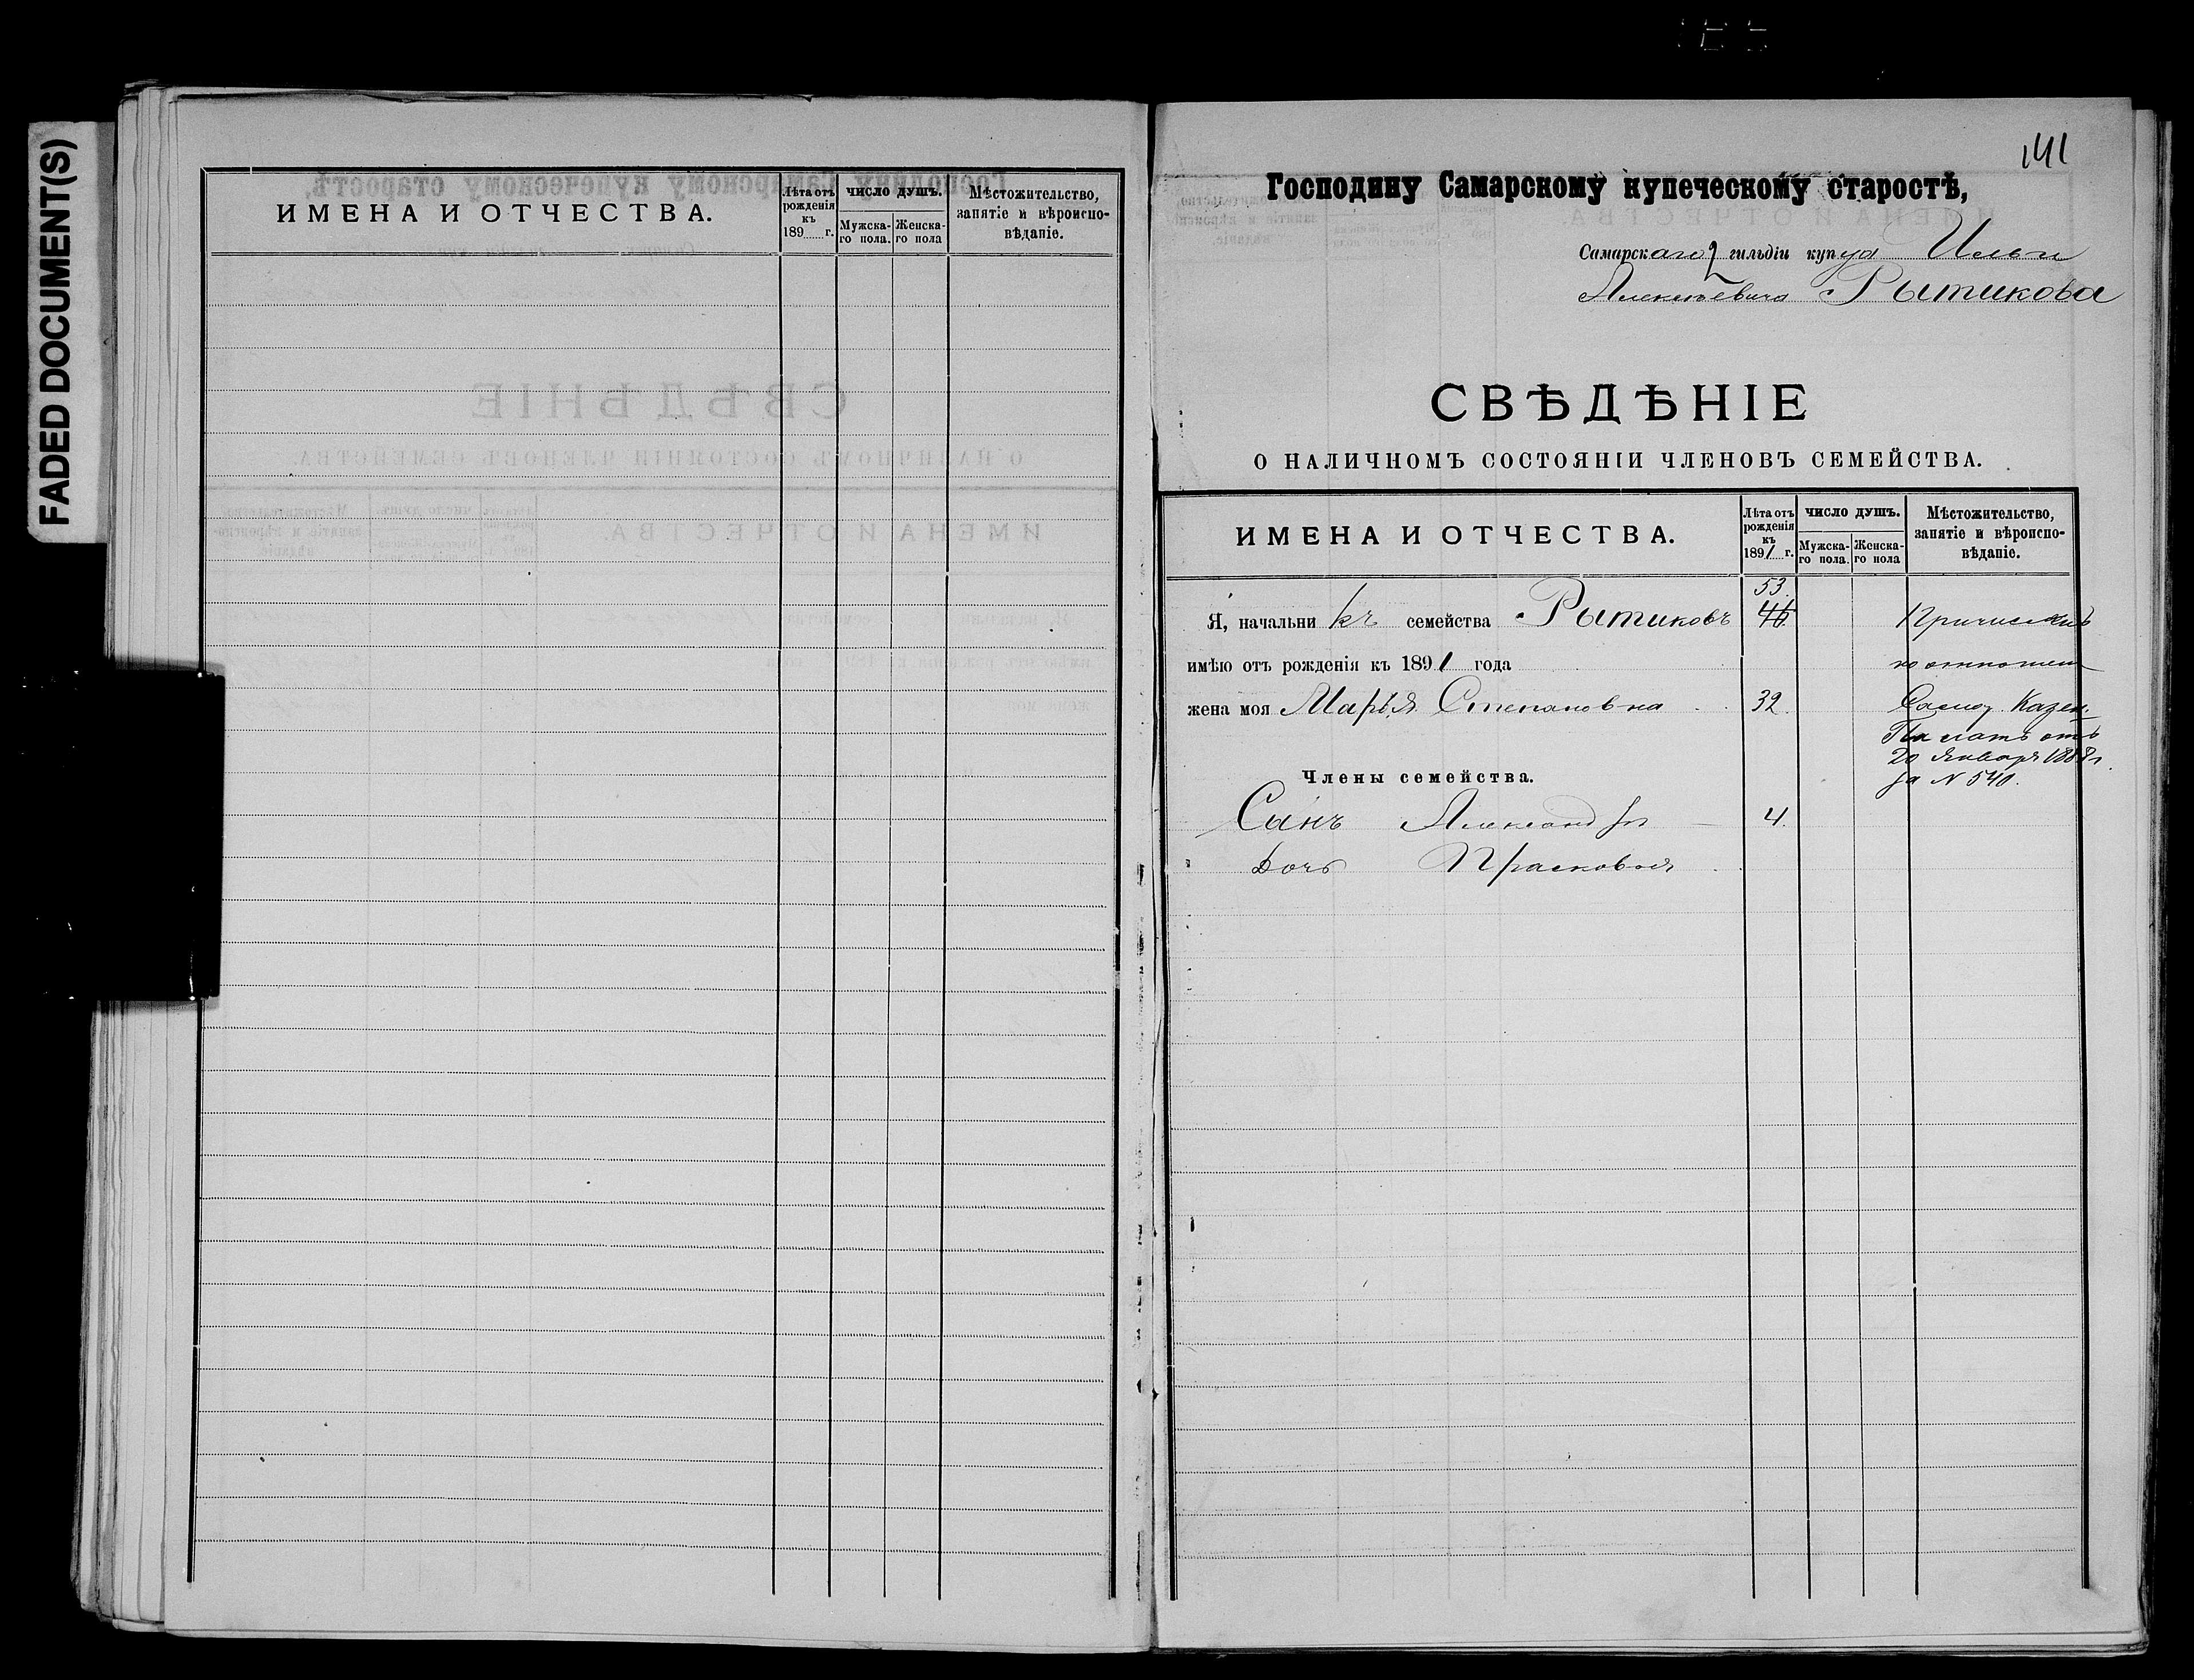 FADED DOCUMENT(S)
ИМЕНА И ОТЧЕСТВА.
Лѣта отъ рожденія къ 189 г.
ЧИСЛО ДУШЪ.
Мужскаго пола.
Женскаго пола
Мѣстожительство, занятіе и вѣроисповѣданіе.
141
Господину Самарскому купеческому старостѣ,
Самарскаго 2 гильдіи купца Ильи
Алексѣевича Рытикова
СВѢДѢНІЕ
О НАЛИЧНОМЪ СОСТОЯНІИ ЧЛЕНОВЪ СЕМЕЙСТВА.
ИМЕНА И ОТЧЕСТВА.
Лѣта отъ рожденія къ 1891 г.
ЧИСЛО ДУШЪ.
Мужскаго пола.
Женскаго пола
Мѣстожительство, занятіе и вѣроисповѣданіе.
53.
Я, начальникъ семейства Рытиковъ 46. Причисленъ
имѣю отъ рожденія къ 1891 года по отношен
жена моя Марья Степановна 32. Казен.
Палаты отъ
20 Января 1888 г.
за N 540.
Члены семейства.
Сынъ Александръ 4.
Дочь Прасковья